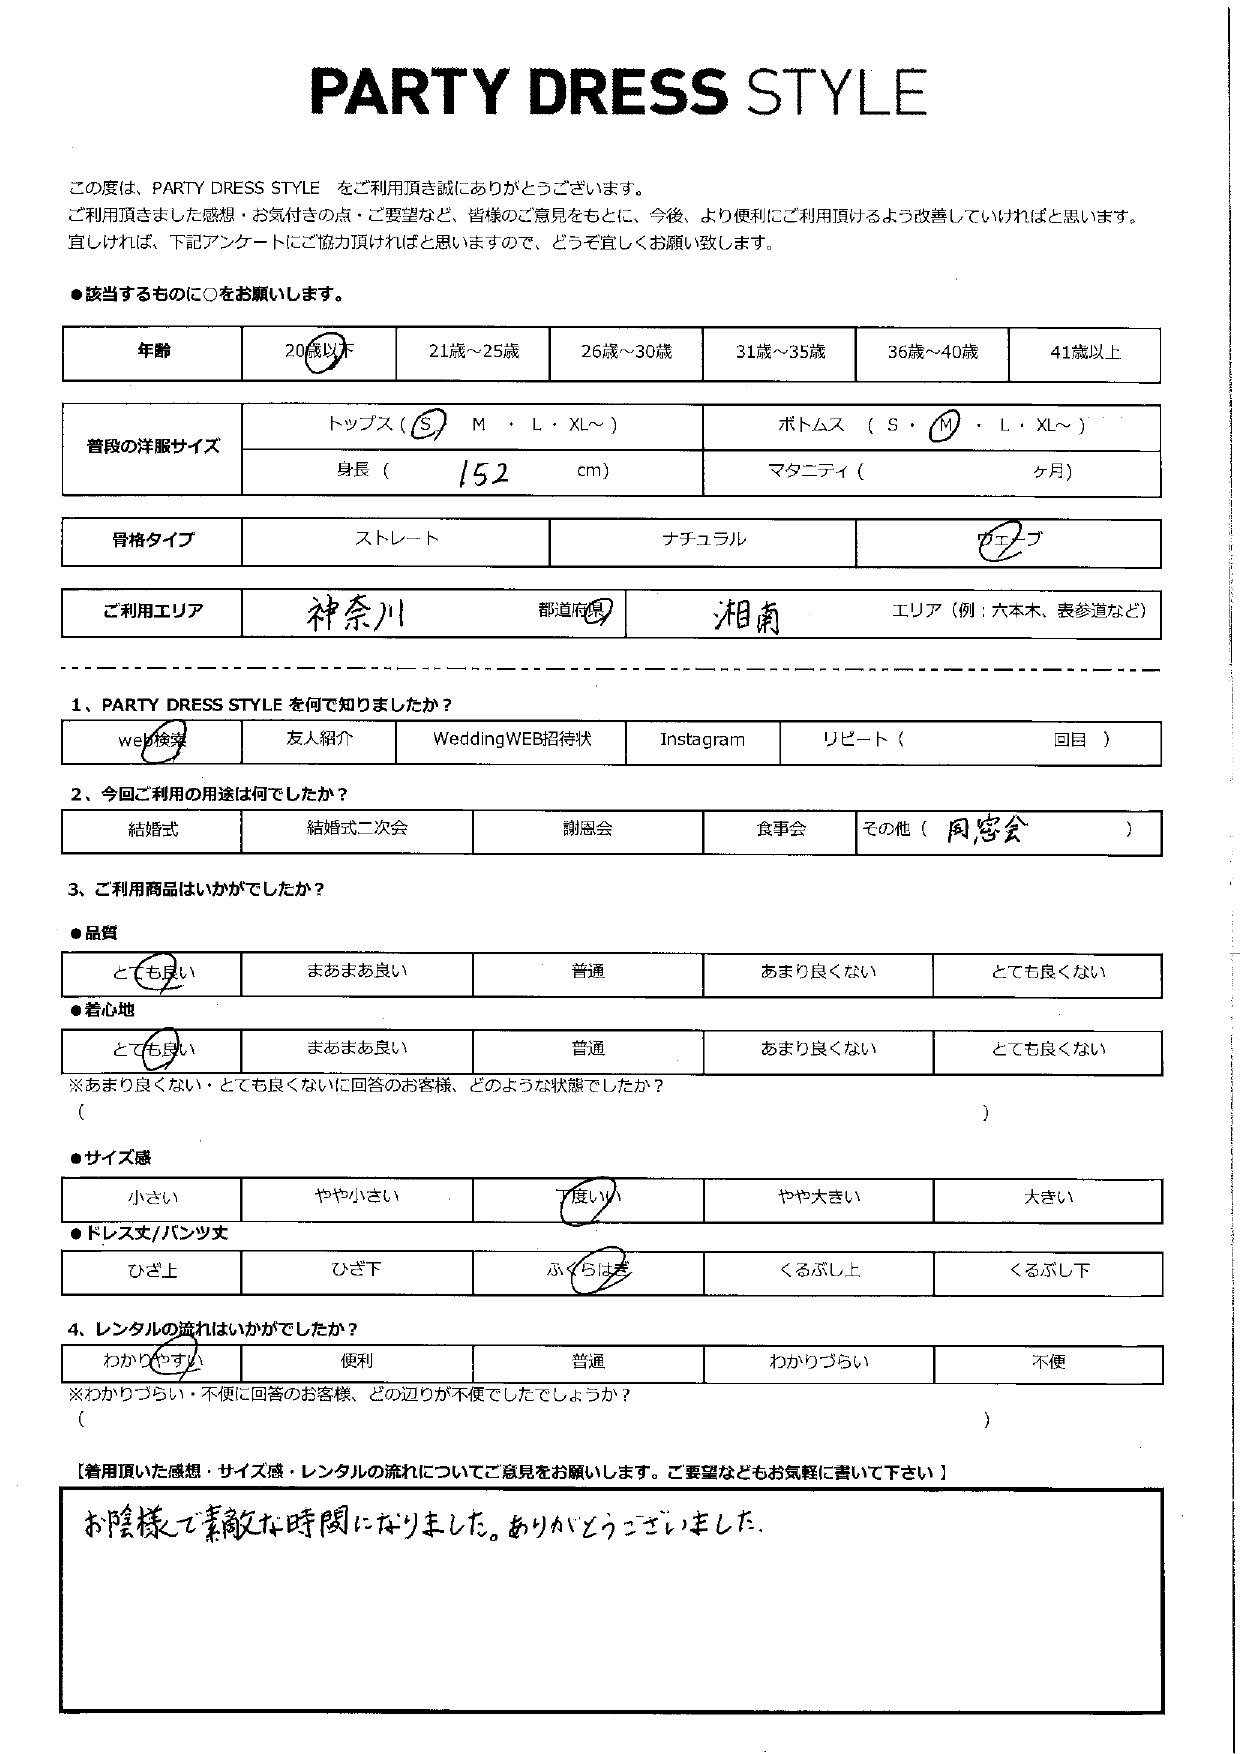 PARTY DRESS STYLE
この度は、PARTY DRESS STYLE をご利用頂き誠にありがとうございます。
ご利用頂きました感想・お気付きの点・ご要望など、皆様のご意見をもとに、今後、より便利にご利用頂けるよう改善していければと思います。
宜しければ、下記アンケートにご協力頂ければと思いますので、どうぞ宜しくお願い致します。
●該当するものに○をお願いします。
年齢 20歳以下 21歳～25歳 26歳～30歳 31歳～35歳 36歳～40歳 41歳以上
普段の洋服サイズ
トップス ( S M ・ L ・ XL～ ) ボトムス ( S ・ M ・ L ・ XL～ )
身長 ( 152 cm) マタニティ ( ヶ月)
骨格タイプ ストレート ナチュラル ウェーブ
ご利用エリア 神奈川 都道府県 湘南 エリア（例：六本木、表参道など）
1、PARTY DRESS STYLE を何で知りましたか？
web検索 友人紹介 WeddingWEB招待状 Instagram リピート ( 回目 )
2、今回ご利用の用途は何でしたか？
結婚式 結婚式二次会 謝恩会 食事会 その他 ( 同窓会 )
3、ご利用商品はいかがでしたか？
●品質
とても良い まあまあ良い 普通 あまり良くない とても良くない
●着心地
とても良い まあまあ良い 普通 あまり良くない とても良くない
※あまり良くない・とても良くないに回答のお客様、どのような状態でしたか？
( )
●サイズ感
小さい やや小さい 丁度いい やや大きい 大きい
●ドレス丈/パンツ丈
ひざ上 ひざ下 ふくらはぎ くるぶし上 くるぶし下
4、レンタルの流れはいかがでしたか？
わかりやすい 便利 普通 わかりづらい 不便
※わかりづらい・不便に回答のお客様、どの辺りが不便でしたでしょうか？
( )
【着用頂いた感想・サイズ感・レンタルの流れについてご意見をお願いします。ご要望などもお気軽に書いて下さい 】
お陰様で素敵な時間になりました。ありがとうございました.